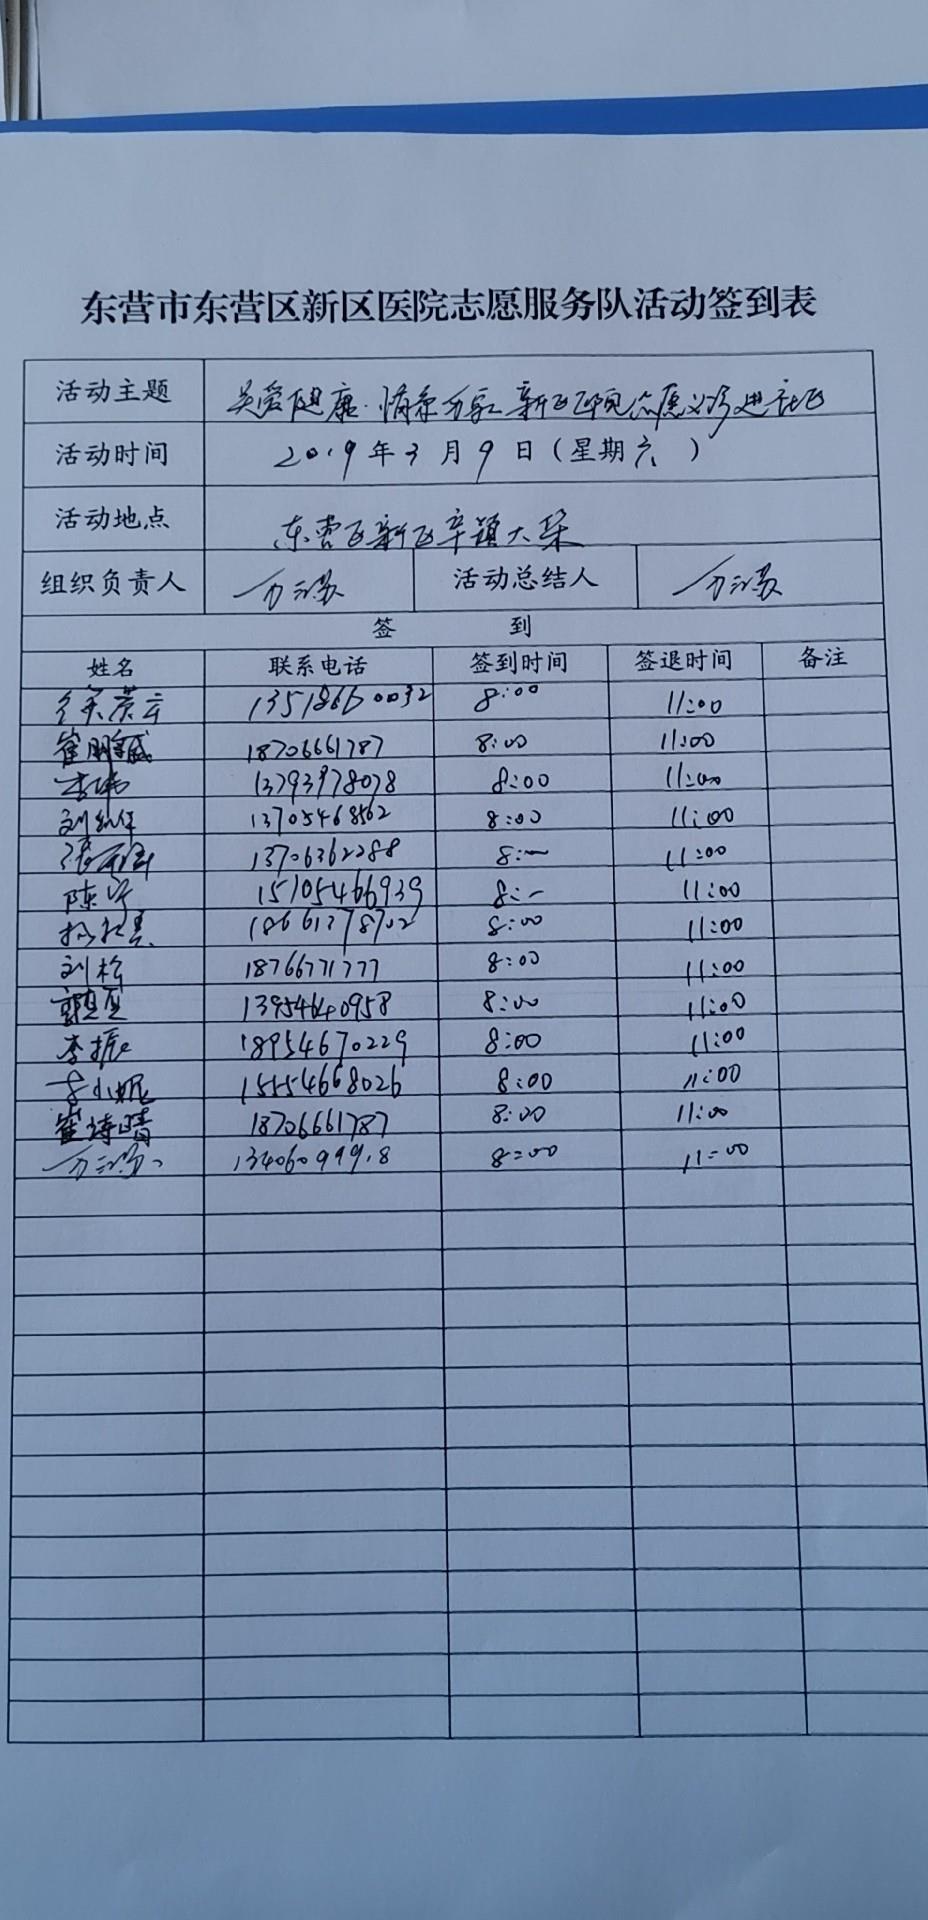 东营市东营区新区医院志愿服务队活动签到表
活动主题 关爱健康·情系万家 新区医院志愿义诊进社区
活动时间 2019年3月9日(星期六)
活动地点 东营区新区辛镇大集
组织负责人 活动总结人
签 到
姓名 联系电话 签到时间 签退时间 备注
13518660032 8:00 11:00
崔鹏 18706661787 8:00 11:00
李伟 13793978078 8:00 11:00
刘 13705468562 8:00 11:00
张 13706362288 8:— 11:00
陈 15105466939 8:— 11:00
杨 18661378702 8:00 11:00
刘松 18766771777 8:00 11:00
13954640958 8:00 11:00
李振 18954670229 8:00 11:00
15554668026 8:00 11:00
崔诗晴 18706661787 8:00 11:00
13406099918 8:00 11:00